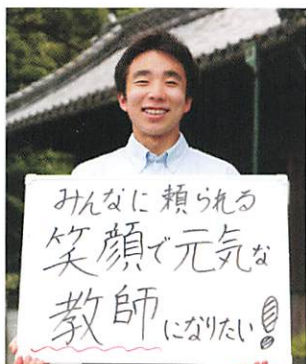 みんなに頼られる
笑顔で元気な
教師になりたい!